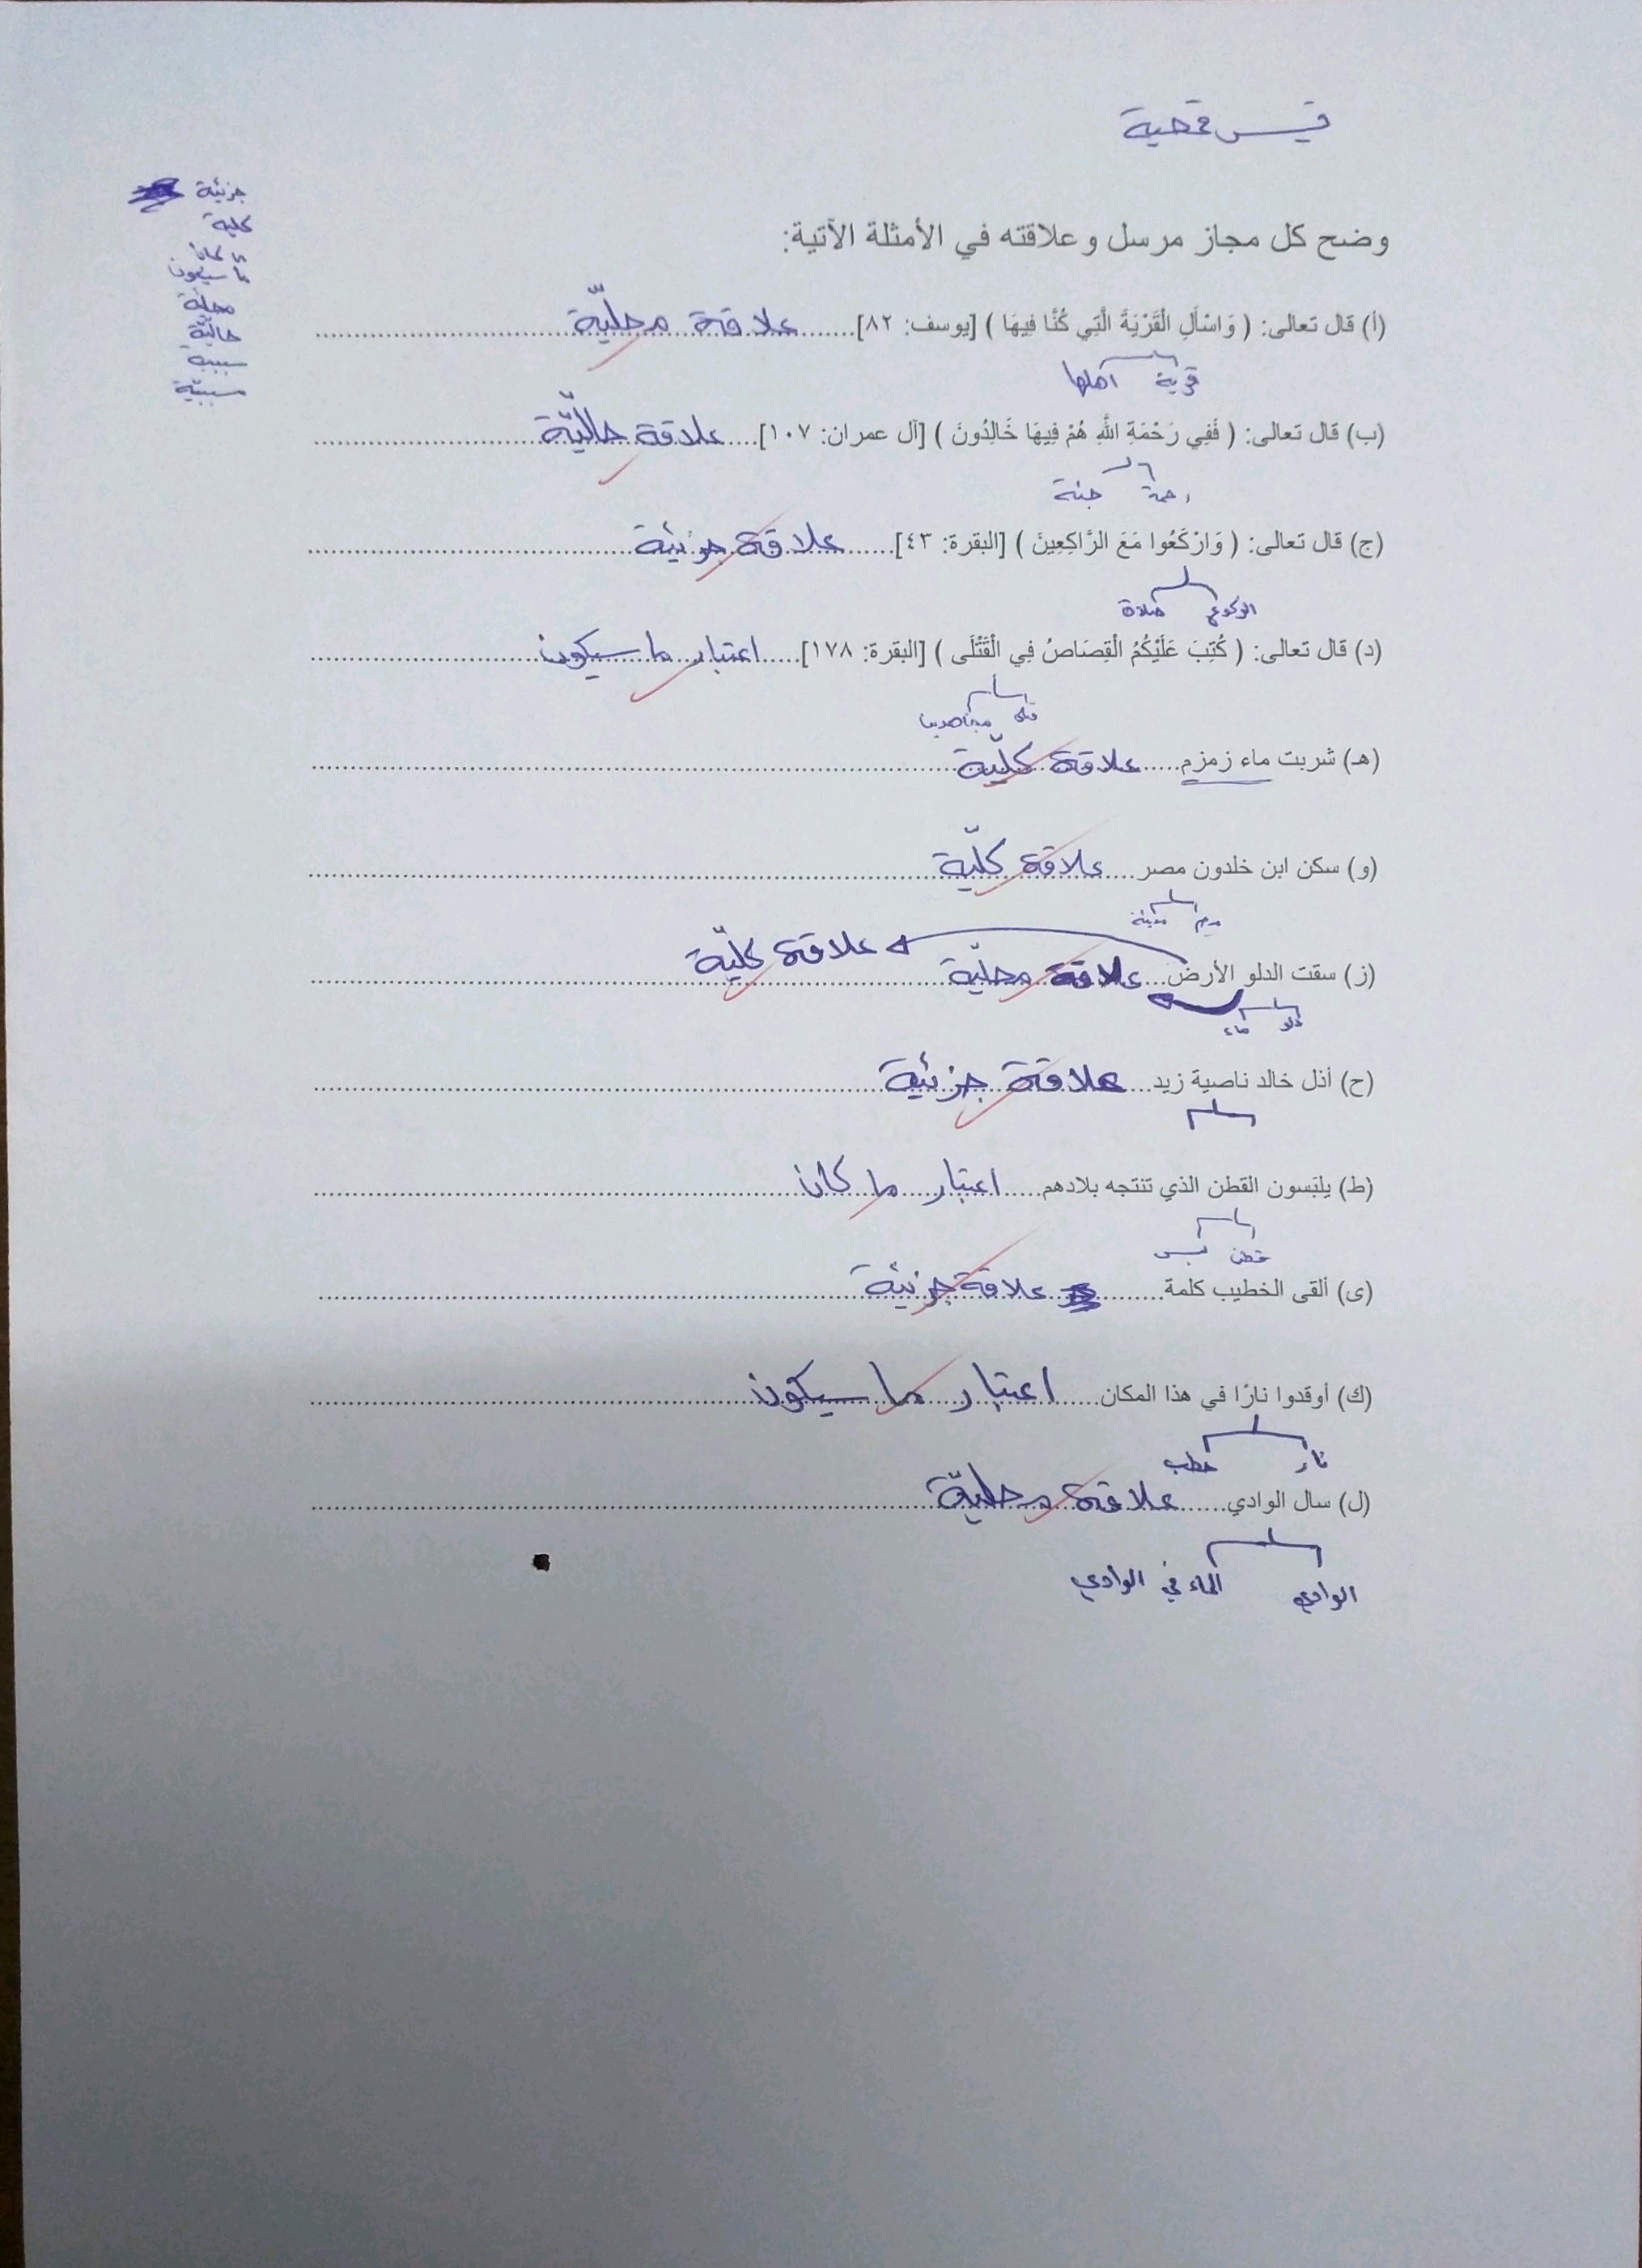 قيس قمحية
جزئية
كلية
ما كان
ما سيكون
محلية
حاليّة
سببية
مسببيّة
وضح كل مجاز مرسل وعلاقته في الأمثلة الآتية:
(أ) قال تعالى: ( وَاسْأَلِ الْقَرْيَةَ الَّتِي كُنَّا فِيهَا ) [يوسف: ٨٢].......علاقة محليّة
قرية أهلها
(ب) قال تعالى: ( فَفِي رَحْمَةِ اللَّهِ هُمْ فِيهَا خَالِدُونَ ) [آل عمران: ١٠٧].....علاقة حاليّة
رحمة جنة
(ج) قال تعالى: ( وَارْكَعُوا مَعَ الرَّاكِعِينَ ) [البقرة: ٤٣]......علاقة جزئية
الركوع صلاة
(د) قال تعالى: ( كُتِبَ عَلَيْكُمُ الْقِصَاصُ فِي الْقَتْلَى ) [البقرة: ١٧٨].....اعتبار ما سيكون
قتلى
(هـ) شربت ماء زمزم.....علاقة كليّة
(و) سكن ابن خلدون مصر.....علاقة كليّة
مصر مدينة
(ز) سقت الدلو الأرض.....علاقة محليّة علاقة كليّة
دلو ماء
(ح) أذل خالد ناصية زيد.....علاقة جزئية
(ط) يلبسون القطن الذي تنتجه بلادهم.....اعتبار ما كان
قطن
(ى) ألقى الخطيب كلمة.......علاقة جزئية
(ك) أوقدوا نارًا في هذا المكان.....اعتبار ما سيكون
نار حطب
(ل) سال الوادي......علاقة محليّة
الوادي الماء في الوادي